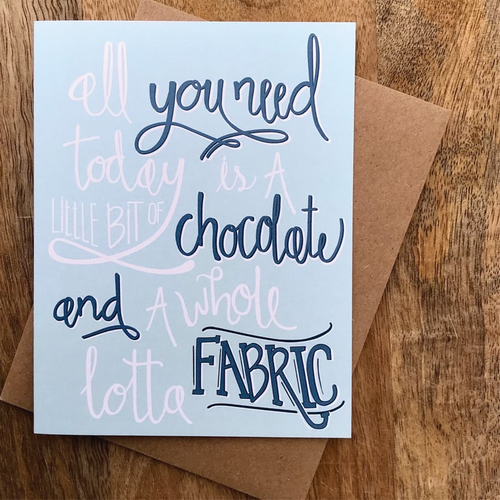 all you need
today is A
LITTLE BIT OF chocolate
and A whole
lotta FABRIC